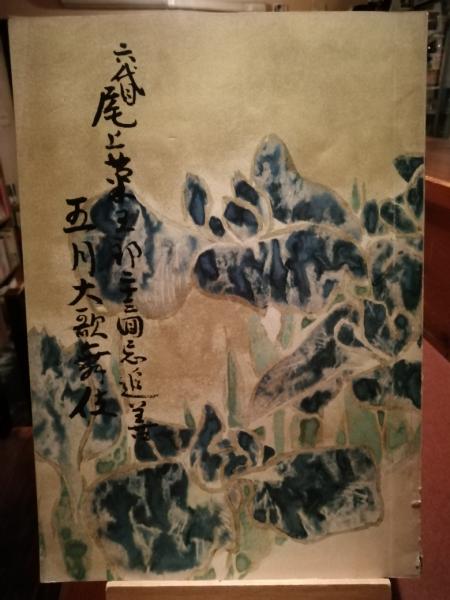 六代目尾上菊五郎二十三回忌追善
五月大歌舞伎